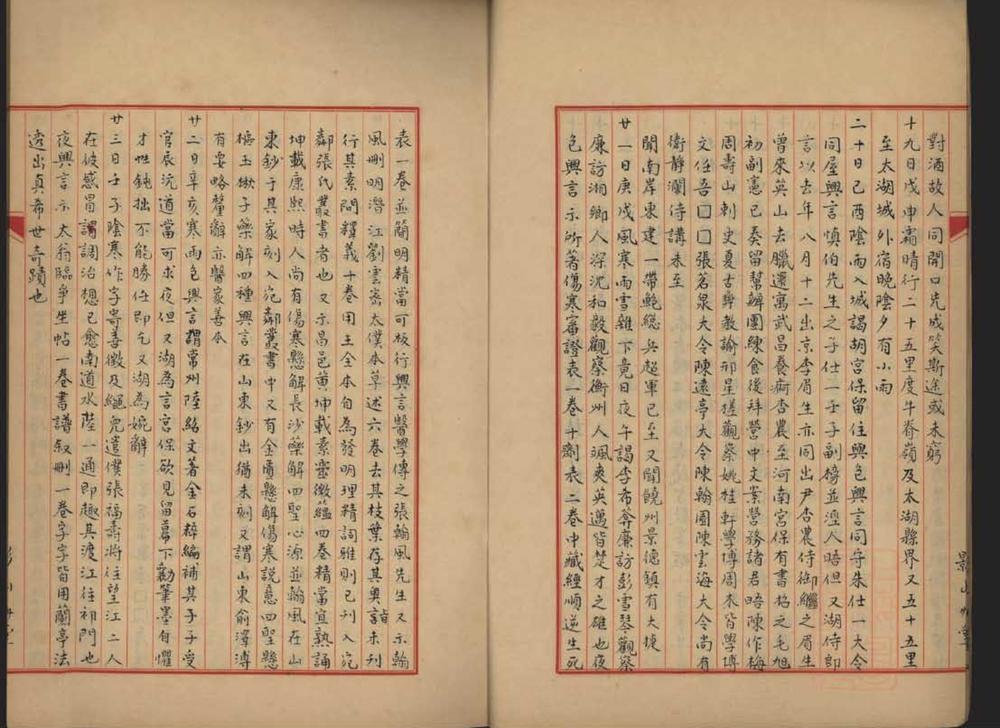 對酒故人同開口先成笑斯途或未窮
十九日戊申霜晴行二十五里度牛脊嶺及太湖縣界又五十五里
至太湖城外宿晚陰夕有小雨
二十日己酉陰雨入城謁胡宮保留住興色興言同寄朱仕一大令
同屋興言慎伯先生之子仕一壬子副榜並涇人晤但又湖侍郎
言以去年八月十二出京李眉生亦同出尹杏農侍御繼之眉生
曾來英山去臘還寓武昌養痾杏農至河南宮保有書招之毛旭
初副憲已奏留幫辦團練食後拜營中文案營務諸君晤陳作梅
周壽山刺史夏古彝教諭邢星槎觀察姚桂軒學博周木皆學博
文任吾囗囗張茗泉大令陳遠亭大令陳翰園陳雲海大令尚有
衛靜瀾侍講未至
聞南岸東建一帶鮑總兵超軍已至又聞饒州景德鎮有大捷
廿一日庚戌風寒雨雪雜下竟日夜午謁李布葊廉訪彭雪琴觀察
廉訪湘鄉人深沈和毅觀察衡州人颯爽英邁皆楚才之雄也夜
色興言示所著傷寒審證表一卷十劑表二卷中藏經順逆生死
表一卷並簡明精當可板行興言醫學傳之張翰風先生又示翰
風刪明潛江劉雲密太僕本草述六卷去其枝葉存其奧詣未刊
行其素問釋義十卷用王全本自為發明理精詞雅則已刊入宛
鄰張氏叢書者也又示昌邑黃坤載素靈微蘊四卷精當宜熟誦
坤載康熙時人尚有傷寒懸解長沙藥解四聖心源並翰風在山
東鈔于其家刻入宛鄰叢書中又有金匱懸解傷寒說意四聖懸
樞玉楸子藥解四種興言在山東鈔出猶未刻又謂山東俞澤溥
有要略釐辭亦醫家善本
廿二日辛亥寒雨色興言謂常州陸紹文著金石粹編補其子子受
官辰沅道當可求夜但又湖為言宮保欲見留幕下勷筆墨自懼
才性鈍拙不能勝任即乞又湖為婉辭
廿三日壬子陰寒作字寄善徵及繩兒遣僕張福壽將往望江二人
在彼感冒謂調治想已愈南道水陸一通即趣其渡江往祁門也
夜興言示太翁臨爭坐帖一卷書譜叙刪一卷字字皆用蘭亭法
透出真希世奇蹟也